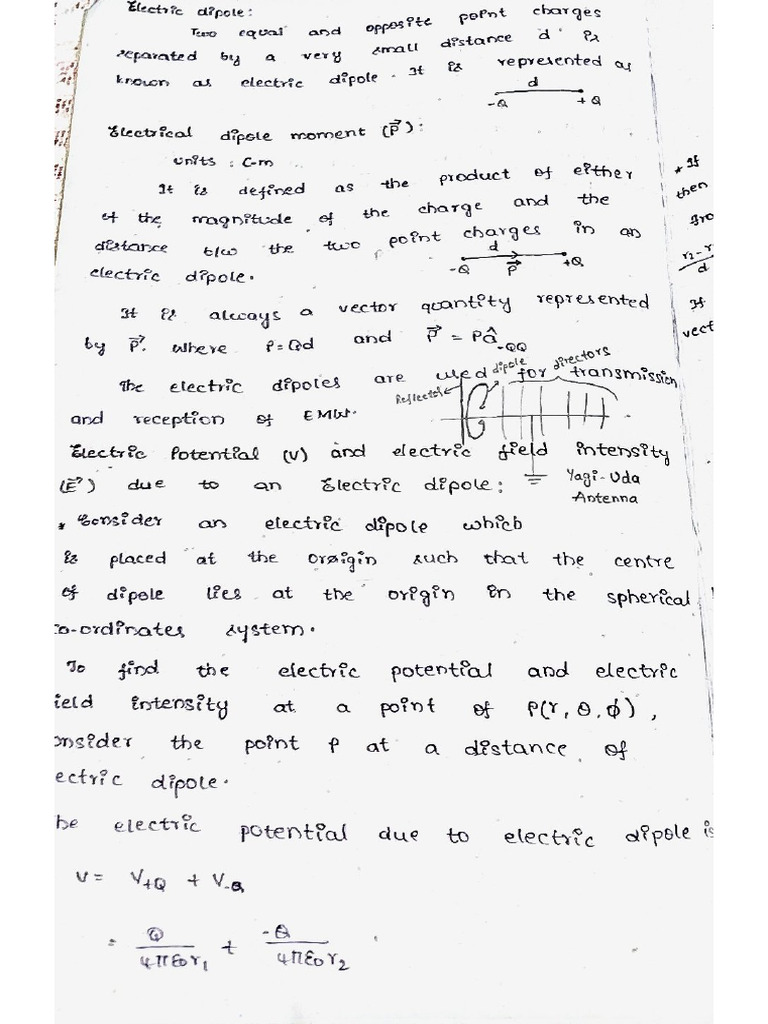 Electric dipole:
Two equal and opposite point charges
separated by a very small distance 'd' is
known as electric dipole. It is represented as
d
-Q +Q
Electrical dipole moment (P⃗):
units : C-m
It is defined as the product of either
of the magnitude of the charge and the
distance b/w the two point charges in an
electric dipole.
d
-Q P⃗ +Q
It is always a vector quantity represented
by P⃗. where P=Qd and P⃗ = Pâ-QQ
The electric dipoles are used for transmission
Reflector dipole directors
and reception of EMW.
Electric Potential (V) and electric field intensity
(E⃗) due to an Electric dipole:
Yagi-Uda
Antenna
* Consider an electric dipole which
is placed at the origin such that the centre
of dipole lies at the origin in the spherical
co-ordinates system.
To find the electric potential and electric
ield intensity at a point of P(r, θ, ϕ),
onsider the point P at a distance of
ectric dipole.
he electric potential due to electric dipole is
V = V+Q + V-Q
= Q/4πε0r1 + -Q/4πε0r2
* If
then
fro
r2-r
d
If
vect